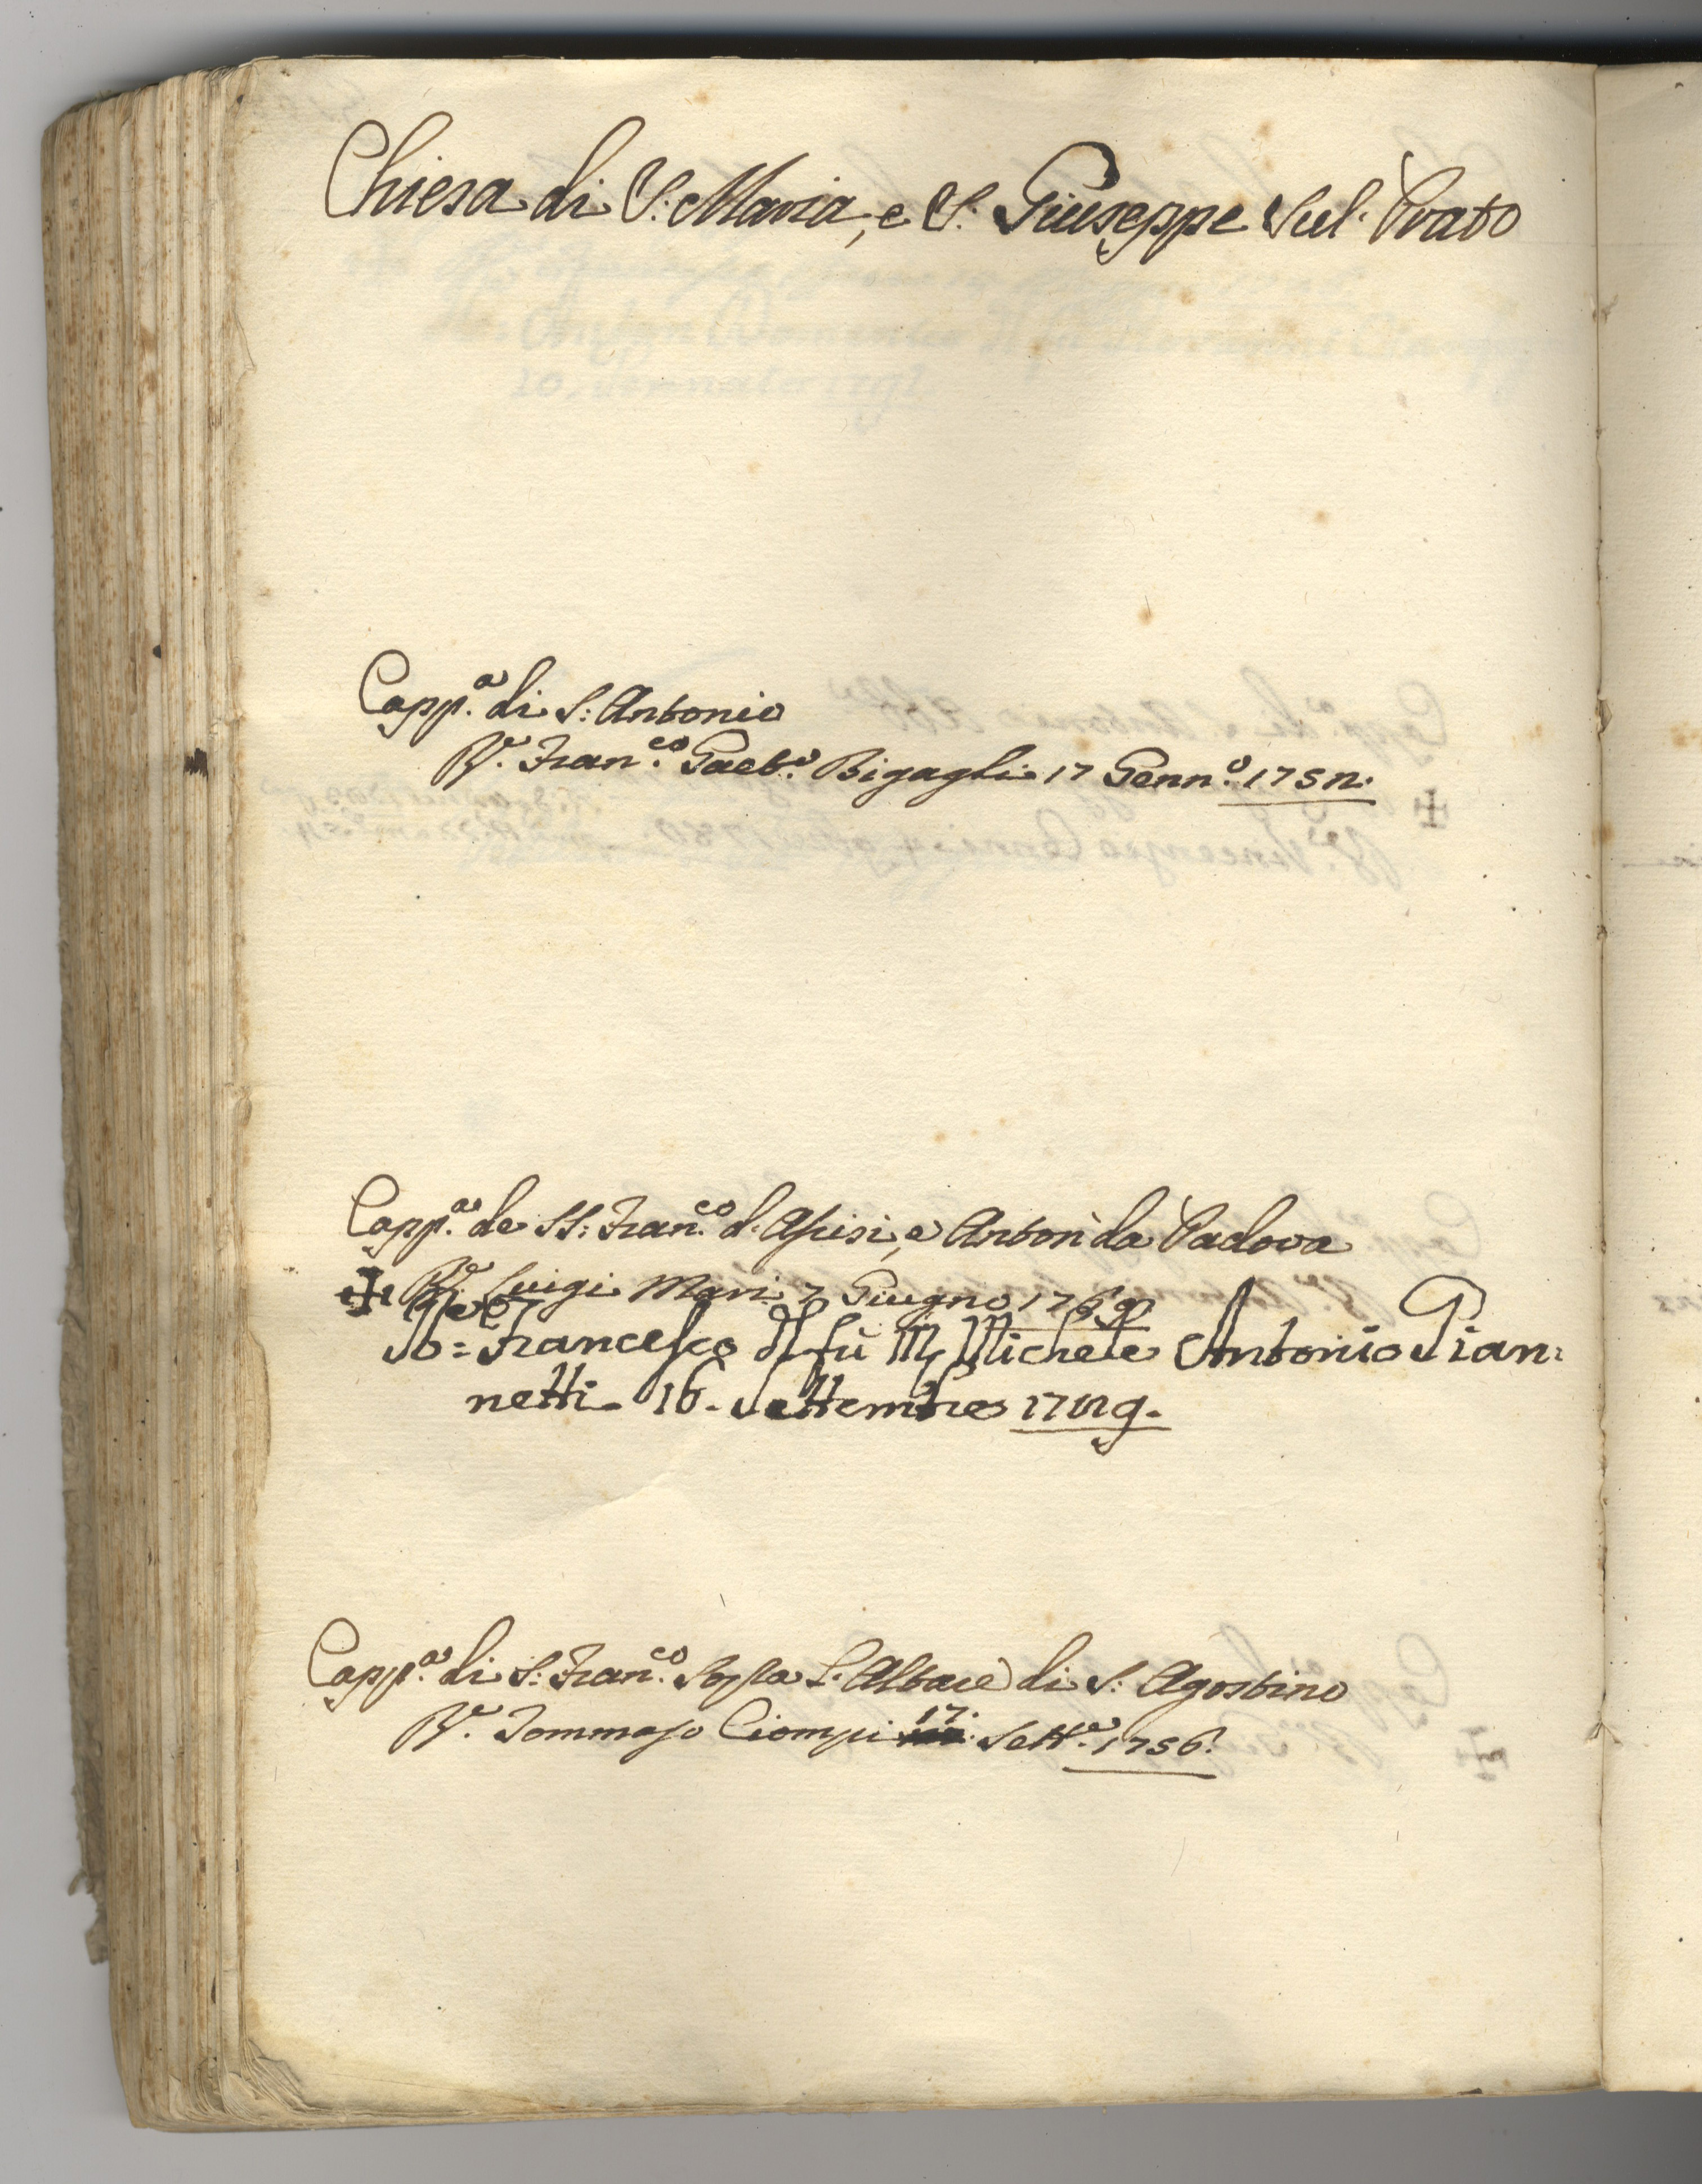 Chiesa di S: Maria, e S. Giuseppe Sul Prato
Capp.a di S: Antonio
R.e Fran.co Gaet.o Bigagli 17 Genn.o
Capp.a de SS: Fran.co d'Assisi, e Anton da Padova
R.e Luigi Mari 7 Giugno 1769
Francesco del fù Michele Antonio Pian:
netti 16. Settembre
Capp.a di S: Fran.co Sop.a L'Altare di S: Agostino
R.e Tommaso Ciompi 17. Sett.e 1756.